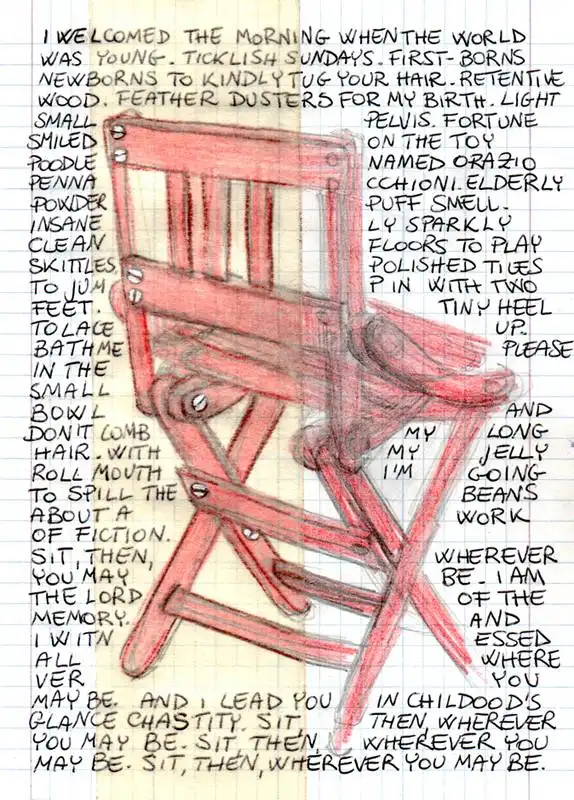 I WELCOMED THE MORNING WHEN THE WORLD
WAS YOUNG. TICKLISH SUNDAYS. FIRST-BORNS
NEWBORNS TO KINDLY TUG YOUR HAIR. RETENTIVE
WOOD. FEATHER DUSTERS FOR MY BIRTH. LIGHT
SMALL PELVIS. FORTUNE
SMILED ON THE TOY
POODLE NAMED ORAZIO
PENNA CCHIONI. ELDERLY
POWDER PUFF SMELL.
INSANE LY SPARKLY
CLEAN FLOORS TO PLAY
SKITTLES, POLISHED TILES
TO JUM P IN WITH TWO
FEET. TINY HEEL
TO LACE UP.
BATH ME PLEASE
IN THE
SMALL
BOWL AND
DON'T COMB MY LONG
HAIR. WITH MY JELLY
ROLL MOUTH I'M GOING
TO SPILL THE BEANS
ABOUT A WORK
OF FICTION.
SIT, THEN, WHEREVER
YOU MAY BE. I AM
THE LORD OF THE
MEMORY. AND
I WITN ESSED
ALL WHERE
VER YOU
MAY BE. AND I LEAD YOU IN CHILDOOD'S
GLANCE CHASTITY. SIT, THEN, WHEREVER
YOU MAY BE. SIT, THEN, WHEREVER YOU
MAY BE. SIT, THEN, WHEREVER YOU MAY BE.